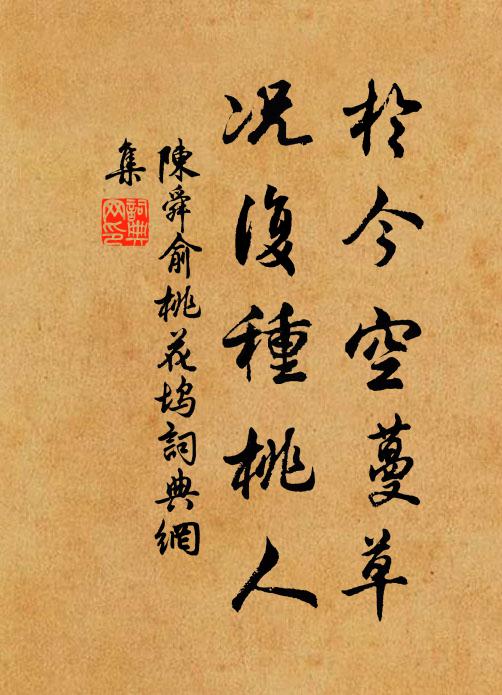 於今空蔓草
况復種桃人
陳舜俞桃花塢詞典網
集
詞典
网印